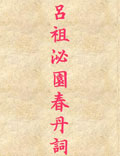 呂祖泌園春丹詞